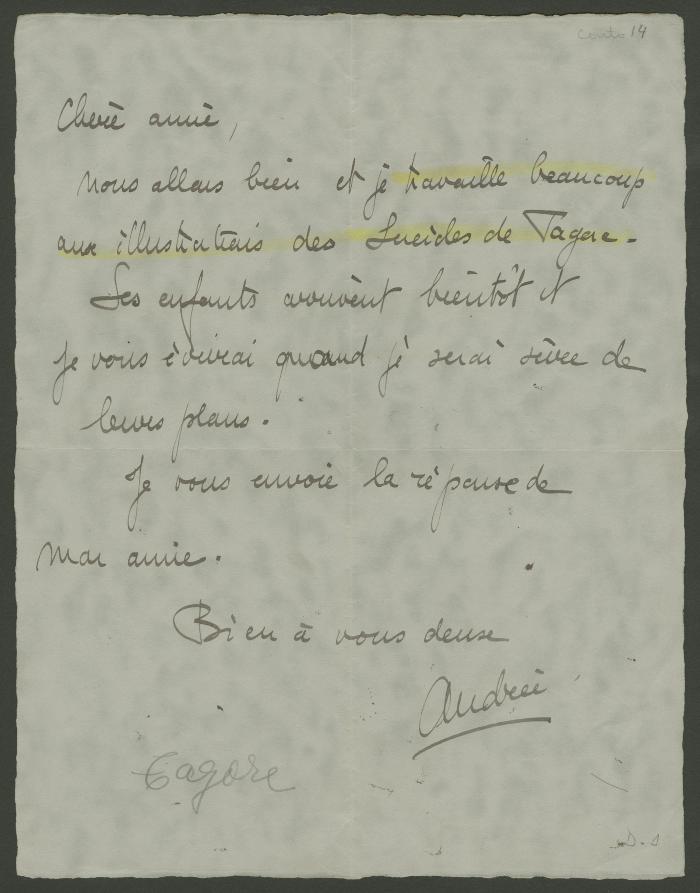 Conto 14
Chère amie,
Nous allons bien et je travaille beaucoup
aux illustrations des Lucioles de Tagore.
Les enfants arrivent bientôt et
je vous écrirai quand je serai sûre de
leurs plans.
Je vous envoie la réponse de
mon amie.
Bien à vous deux
Andrée
Tagore
D.S